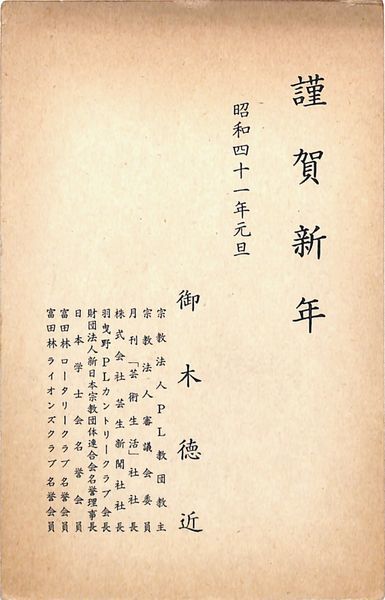 謹賀新年
昭和四十一年元旦
御木徳近
宗教法人PL教団教主
宗教法人審議会委員
月刊「芸術生活」社社長
株式会社芸生新聞社社長
羽曳野PLカントリークラブ会長
財団法人新日本宗教団体連合会名誉理事長
日本学士会名誉会員
富田林ロータリークラブ名誉会員
富田林ライオンズクラブ名誉会員